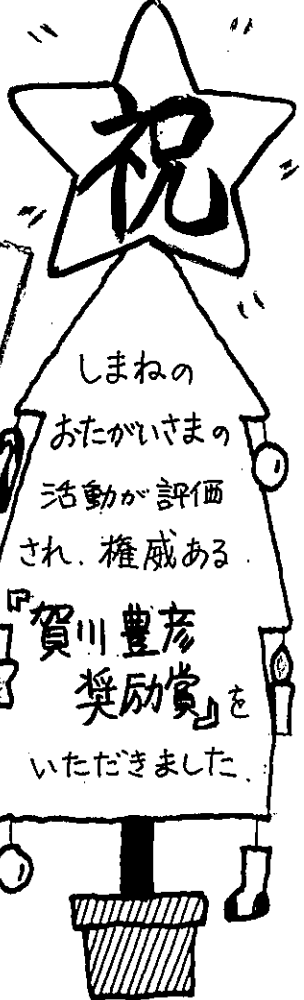 祝
しまねの
おたがいさまの
活動が評価
され、権威ある
『賀川豊彦
奨励賞』を
いただきました.